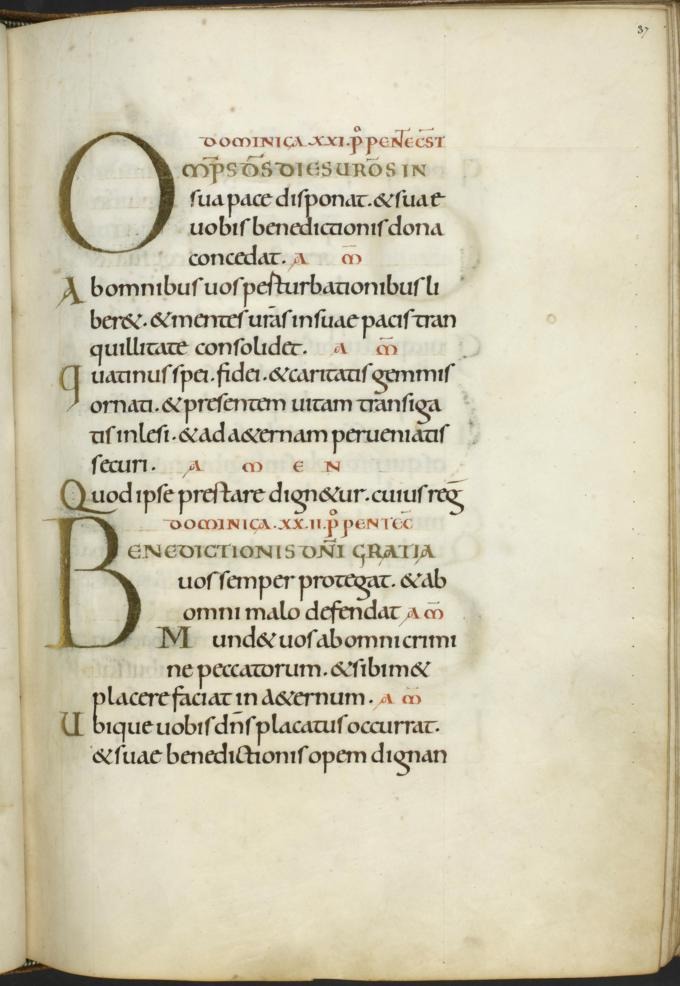 37
DOMINICA. XXI. p̊ PENTEC̄ST
OM̄PS D̄S DIES UR̄OS IN
sua pace disponat. & suae
uobis benedictionis dona
concedat. A M̄
Ab omnibus uos pesturbationibus li
ber&. & mentes ur̄as in suae pacis tran
quillitate consolidet. A M̄
quatinus spei. fidei. & caritatis gemmis
ornati. & presentem uitam transiga
tis inlesi. & ad a&ernam perueniatis
securi. A M E N
Quod ipse prestare dign&ur. cuius reḡ
DOMINICA. XX.II. p̊ PENTEC̄
BENEDICTIONIS DN̄I GRATIA
uos semper protegat. & ab
omni malo defendat A M̄
Mund& uos ab omni crimi
ne peccatorum. & sibim&
placere faciat in a&ernum. A M̄
Ubique uobis dn̄s placatus occurrat.
& suae benedictionis opem dignan